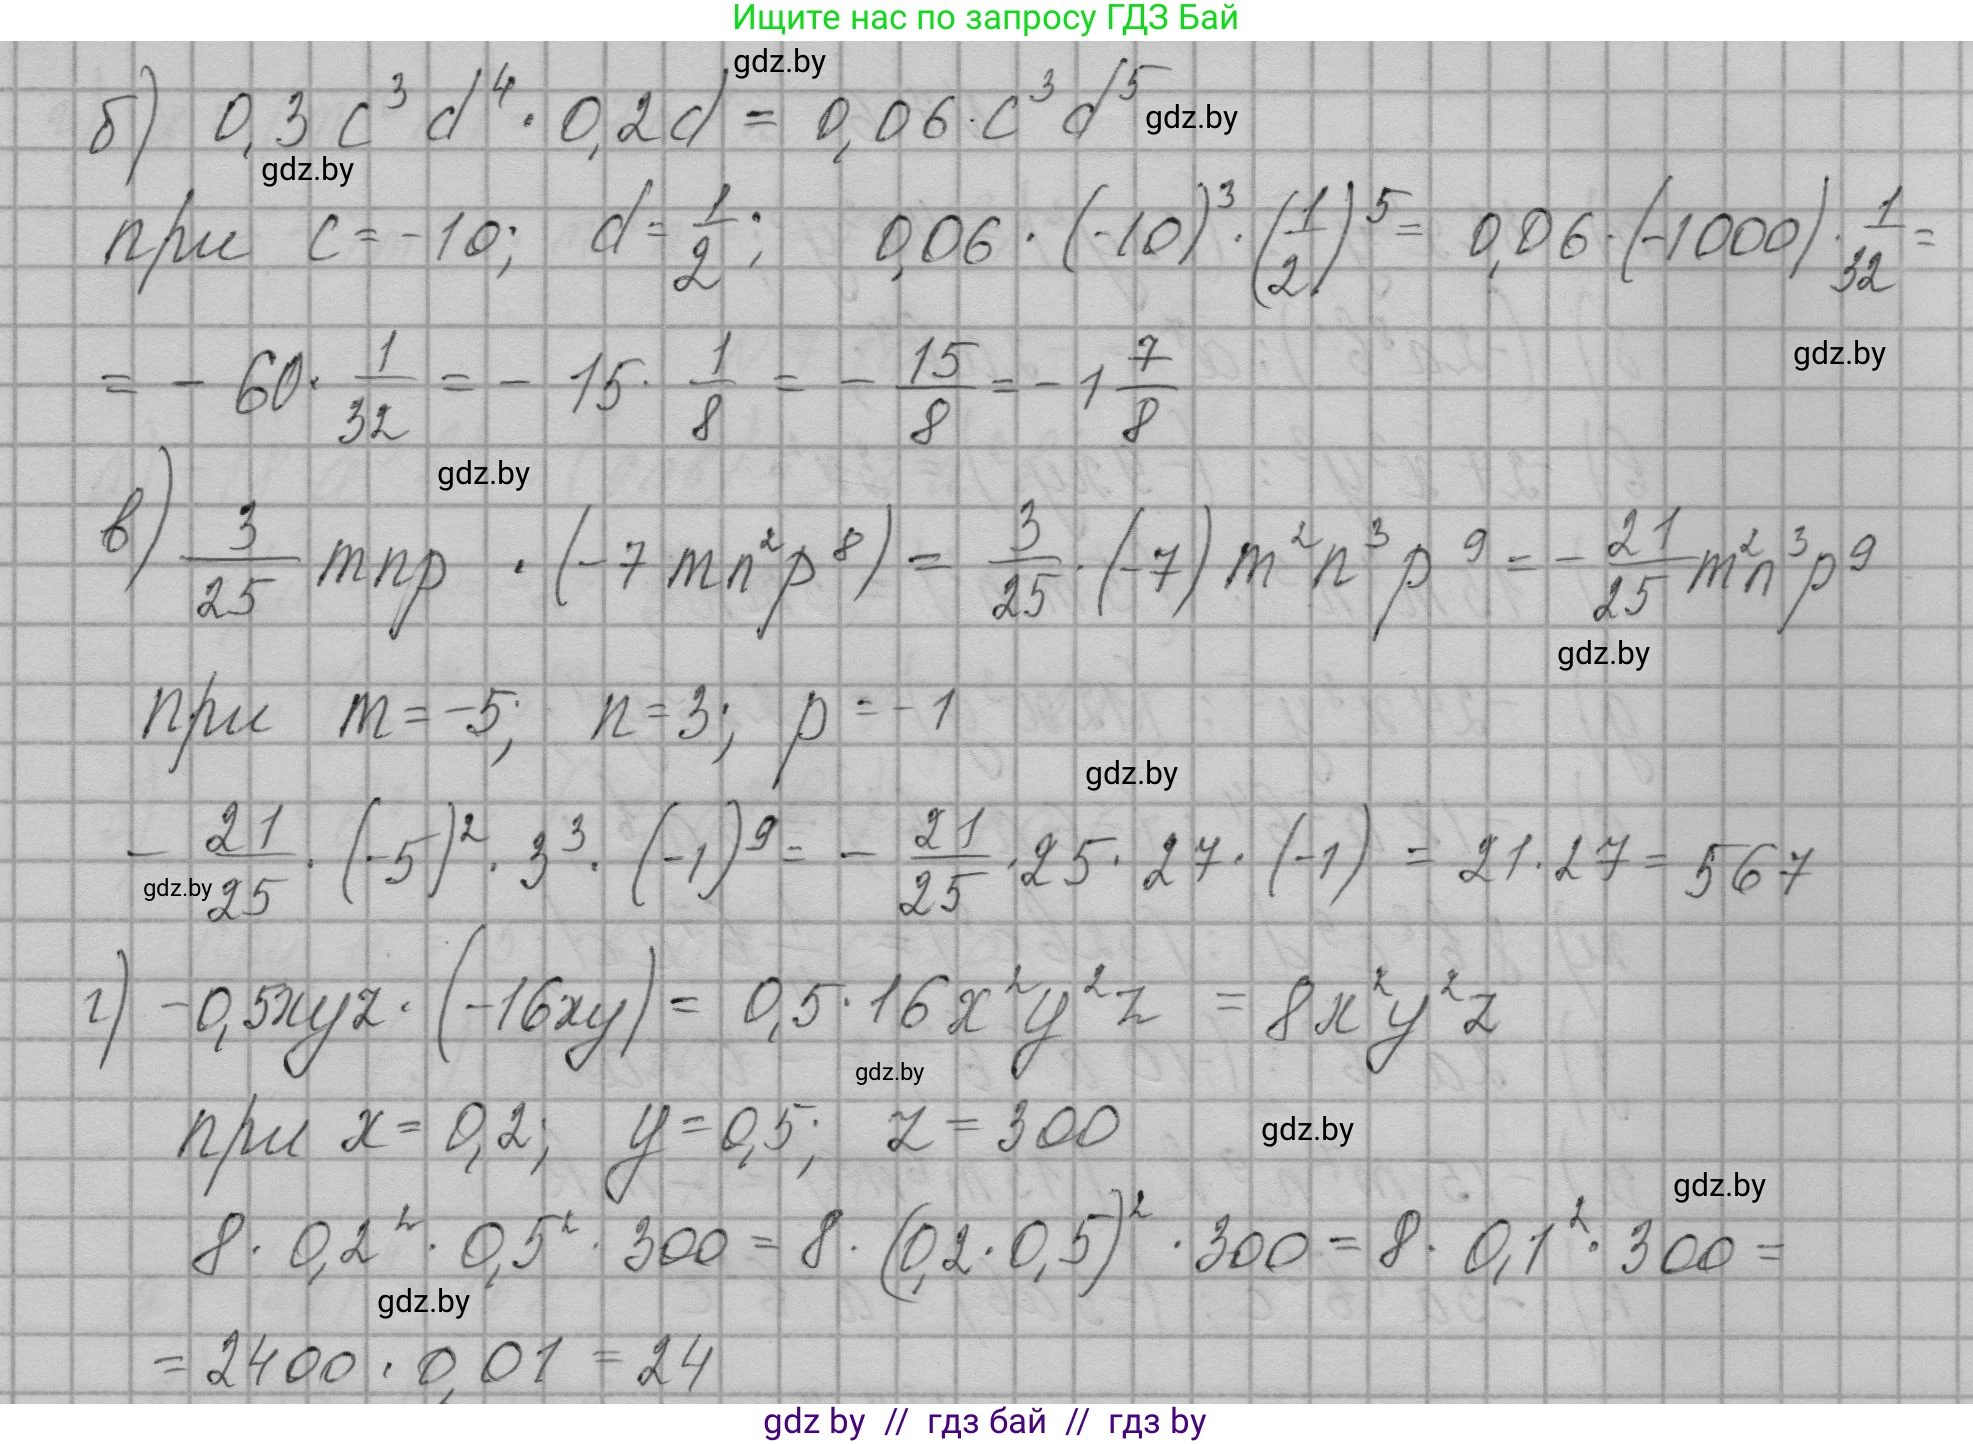 Ищите нас по запросу ГДЗ Бай
gdz.by
б) 0,3 c³ d⁴ · 0,2d = 0,06 · c³ d⁵
gdz.by
gdz.by
при c = -10; d = 1/2; 0,06 · (-10)³ · (1/2)⁵ = 0,06 · (-1000) · 1/32 =
gdz.by
= - 60 · 1/32 = - 15 · 1/8 = - 15/8 = - 1 7/8
gdz.by
в) 3/25 mnp · (-7 mn²p⁸) = 3/25 · (-7) m²n³p⁹ = - 21/25 m²n³p⁹
gdz.by
при m = -5; n = 3; p = -1
gdz.by
- 21/25 · (-5)² · 3³ · (-1)⁹ = - 21/25 · 25 · 27 · (-1) = 21 · 27 = 567
gdz.by
г) -0,5xyz · (-16xy) = 0,5 · 16x²y²z = 8x²y²z
gdz.by
при x = 0,2; y = 0,5; z = 300
gdz.by
gdz.by
8 · 0,2² · 0,5² · 300 = 8 · (0,2 · 0,5)² · 300 = 8 · 0,1² · 300 =
gdz.by
= 2400 · 0,01 = 24
gdz by // гдз бай // гдз by